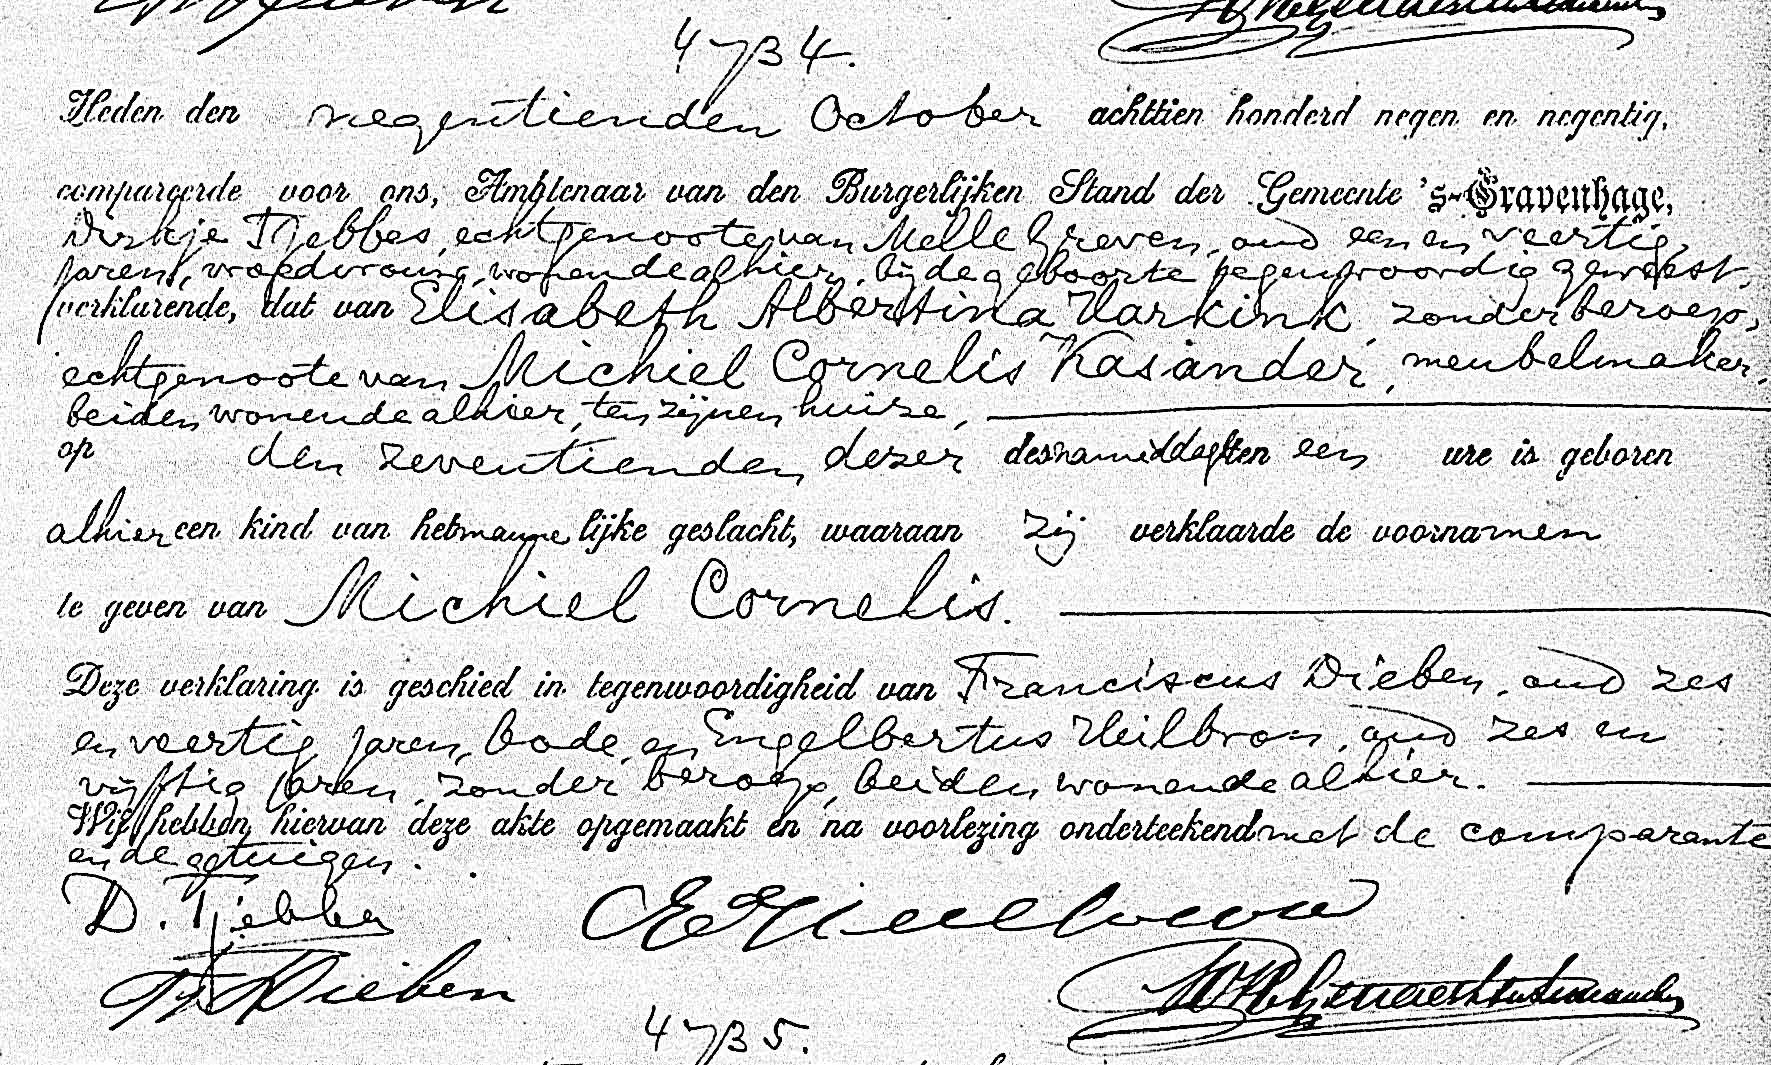 4734.
Heden den negentienden October achttien honderd negen en negentig,
compareerde voor ons, Ambtenaar van den Burgerlijken Stand der Gemeente 's-Gravenhage,
Dirkje Tjebbes, echtgenoote van Melle Greven, oud een en veertig
jaren, vroedvrouw, wonende alhier, bij de geboorte tegenwoordig geweest,
verklarende, dat van Elisabeth Albertina Varkink, zonder beroep,
echtgenoote van Michiel Cornelis Kasander, meubelmaker,
beiden wonende alhier, ten zijnen huize,
op den zeventienden dezer des namiddags ten een ure is geboren
alhier een kind van het mannelijke geslacht, waaraan zij verklaarde de voornamen
te geven van Michiel Cornelis.
Deze verklaring is geschied in tegenwoordigheid van Franciscus Dieben, oud zes
en veertig jaren, bode, en Engelbertus Heilbron, oud zes en
vijftig jaren, zonder beroep, beiden wonende alhier.
Wij hebben hiervan deze akte opgemaakt en na voorlezing onderteekend met de comparante
en de getuigen.
D. Tjebbes
Dieben
4735.